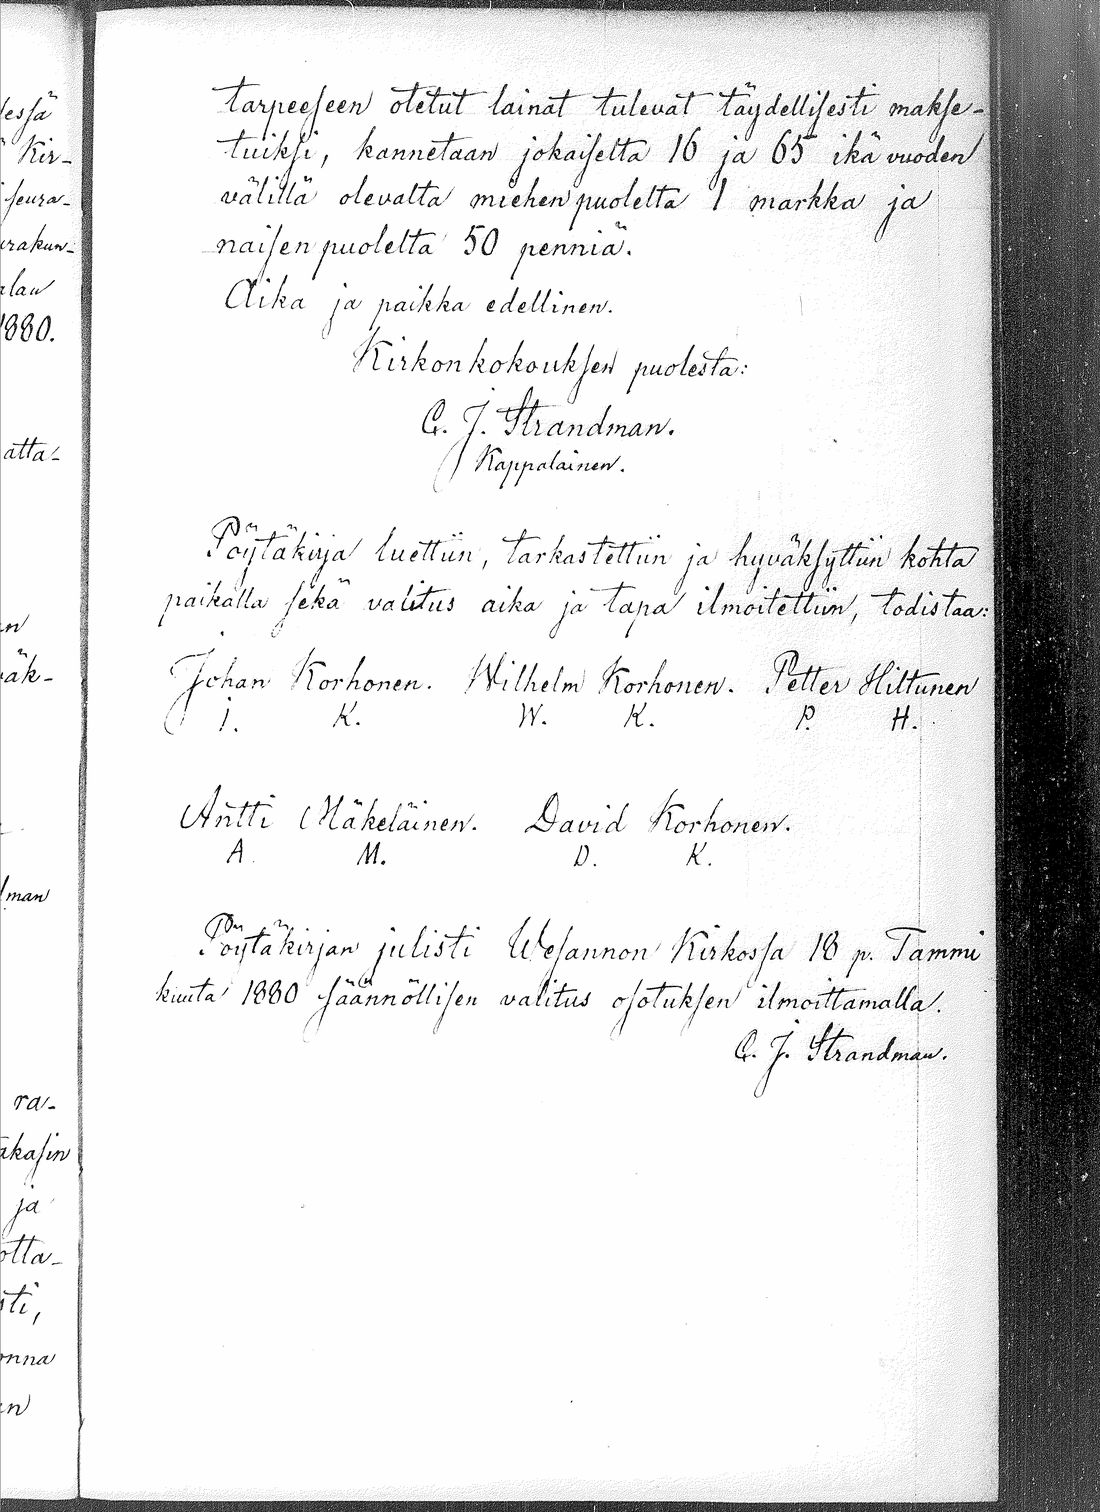 dessä
Kir-
seura-
urakun-
alan
1880.
atta-
en
väk-
dman
ra-
akasin
ja
otta-
sti,
onna
en
tarpeeseen otetut lainat tulevat täydellisesti makse-
tuiksi, kannetaan jokaiselta 16 ja 65 ikä vuoden
välillä olevalta miehen puolelta 1 markka ja
naisen puolelta 50 penniä.
Aika ja paikka edellinen.
Kirkonkokouksen puolesta:
C. J. Strandman.
Kappalainen.
Pöytäkirja luettiin, tarkastettiin ja hyväksyttiin kohta
paikalla sekä valitus aika ja tapa ilmoitettiin, todistaa:
Johan Korhonen. Wilhelm Korhonen. Petter Hiltunen
J. K. W. K. P. H.
Antti Mäkeläinen. David Korhonen.
A. M. D. K.
Pöytäkirjan julisti Wesannon Kirkossa 18 p. Tammi
kuuta 1880 säännöllisen valitus osotuksen ilmoittamalla.
C. J. Strandman.